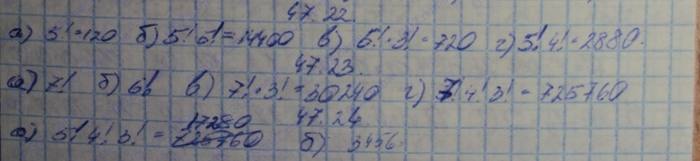 47.22.
а) 5! = 120 б) 5! 5! = 14400 в) 5! · 3! = 720 г) 5! 4! = 2880.
47.23.
а) 7! б) 6! в) 7! · 3! = 30240 г) 7! 4! 3! = 725760
47.24
а) 5! 4! 3! = 17280 б) 3456